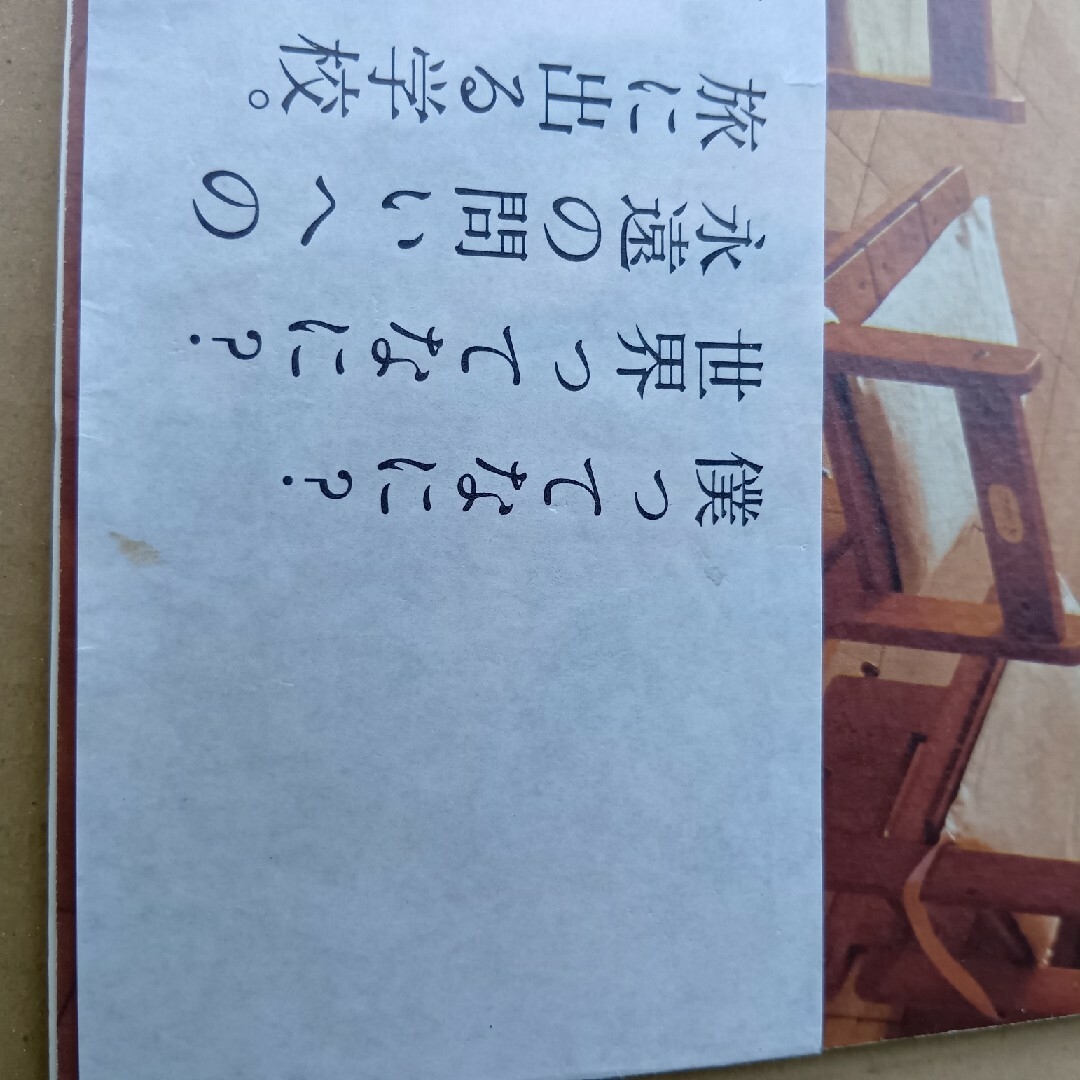 僕ってなに?
世界ってなに?
永遠の問いへの
旅に出る学校。